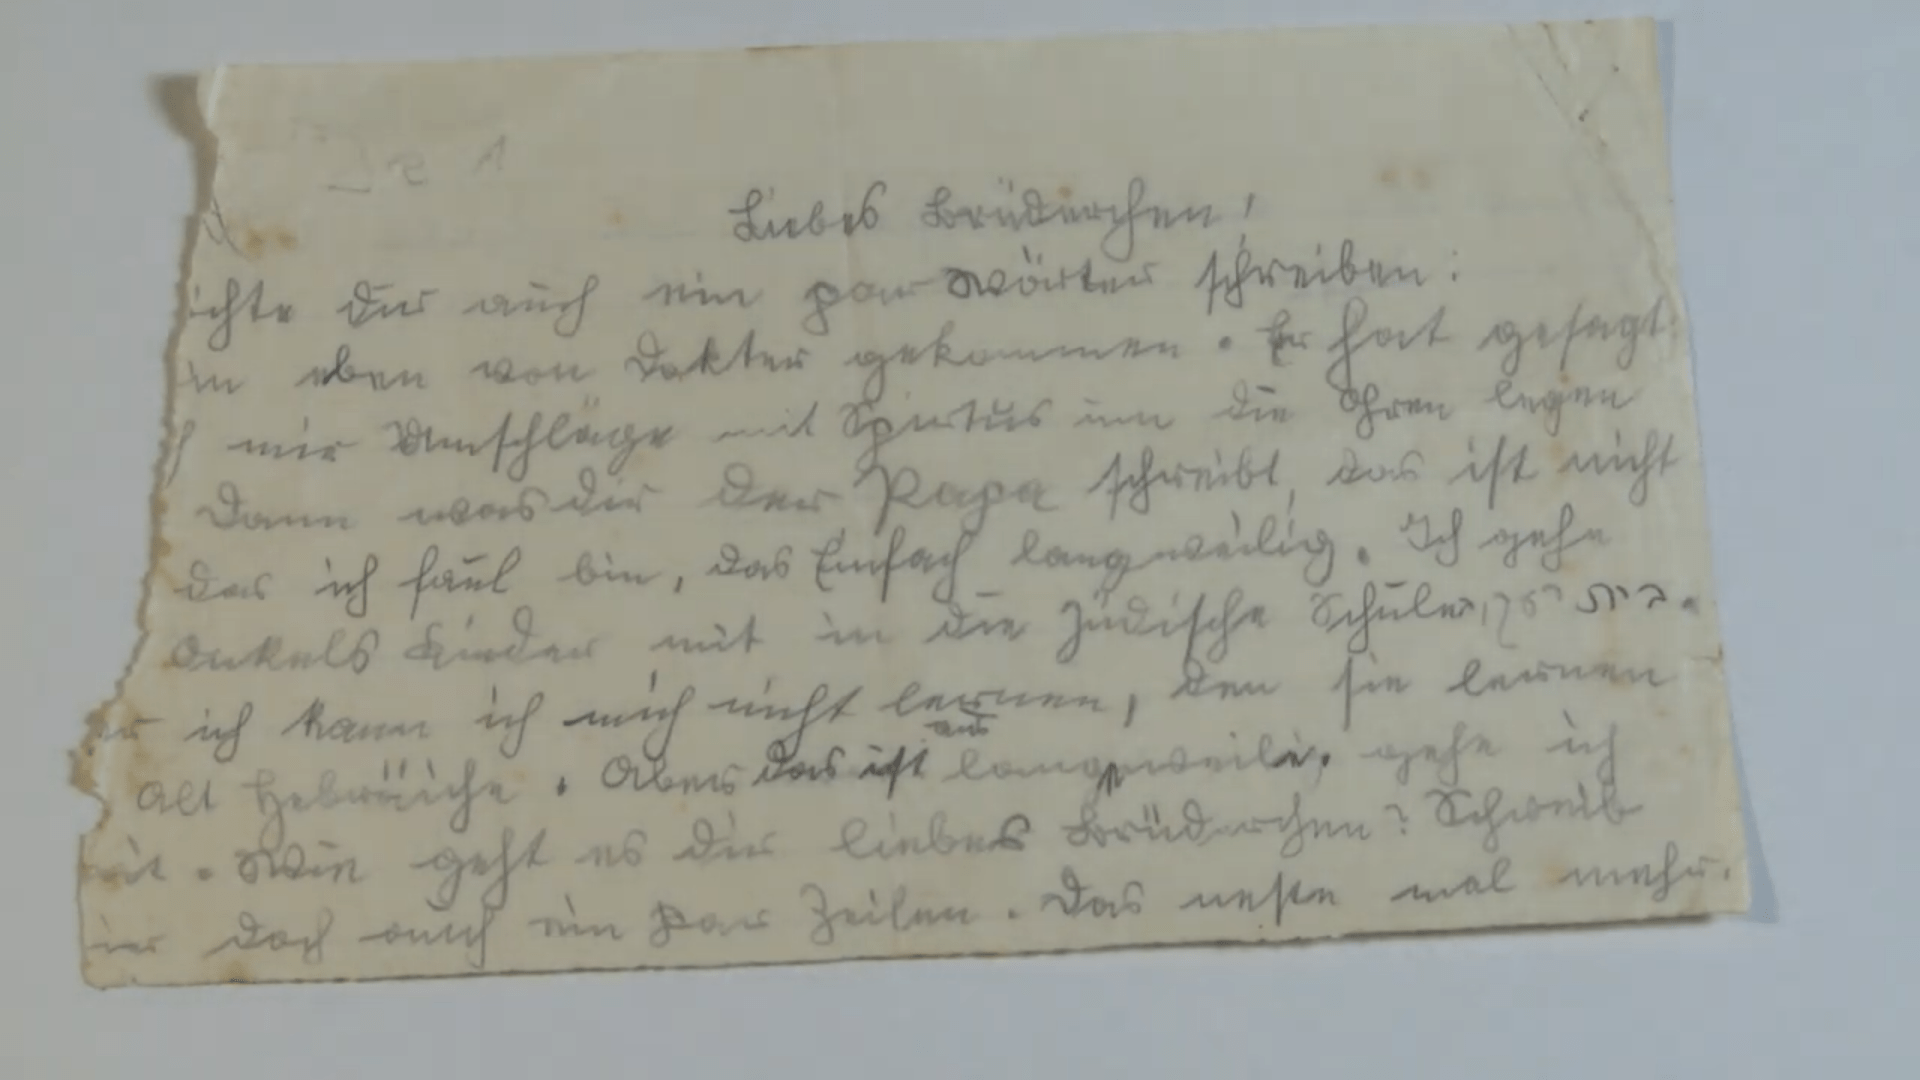 Liebes Brüderchen!
ichte dir auch ein par Wörter schreiben:
in eben von Dokter gekommen. Er hat gesagt
mir Umschläge mit Spirtus um die Ohren legen
Dann was dir der Papa schreibt, das ist nicht
das ich faul bin, das Einfach langweilig. Ich gehe
Onkels Kinder mit in die Jüdische Schule,
er ich kann ich mich nicht lernen, den sie lernen
Alt Hebräiche. Aber das ist aus langeweile, gehe ich
mit. Wie geht es dir liebes Brüderchen? Schreib
mir doch auch ein par Zeilen. Das neste mal mehr.